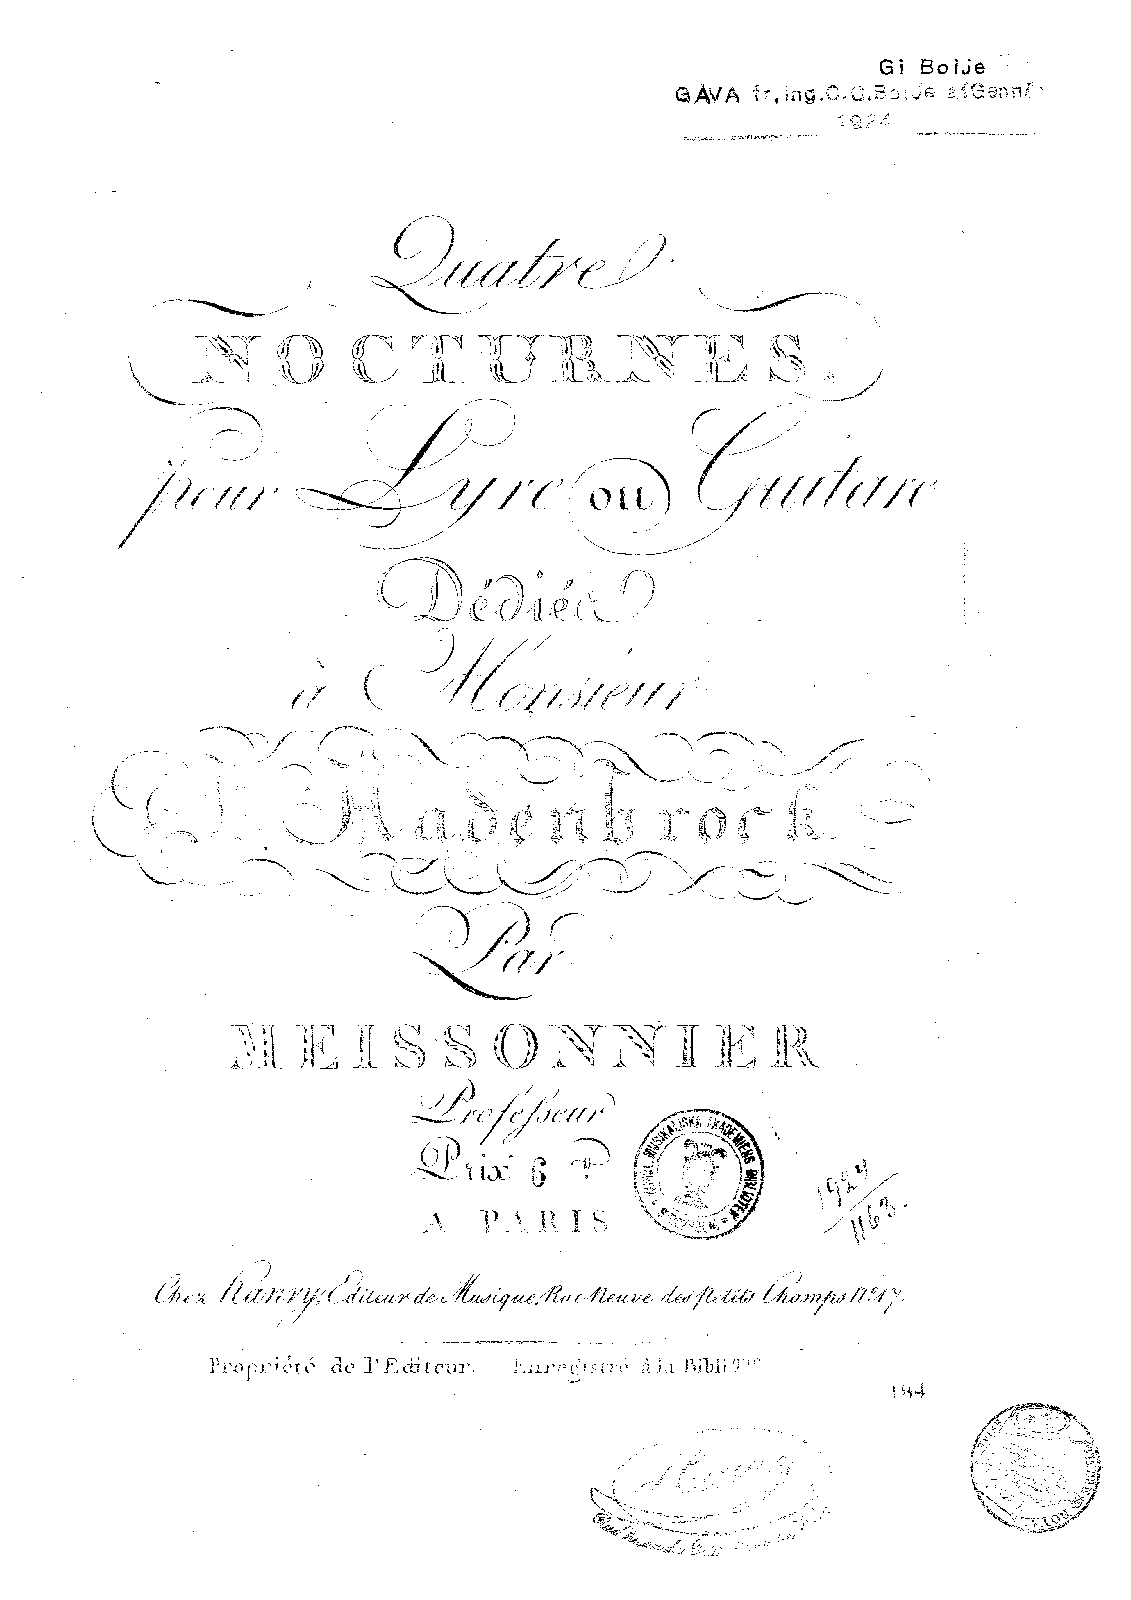 Gi Boije
GÅVA fr, ing. C.O. Boije af Gennäs
1924
Quatre
NOCTURNES.
pour Lyre ou Guitare
Dédiés
à Monsieur
Radenbrock
Par
MEISSONNIER
Professeur
Prix 6
A PARIS
KUNGL. MUSIKALISKA AKADEMIENS BIBLIOTEK
1924
1163.
Chez Hanry, Editeur de Musique, Rue Neuve des Petits Champs N° 17.
Propriété de l'Editeur. Enregistré à la Bibli que
194